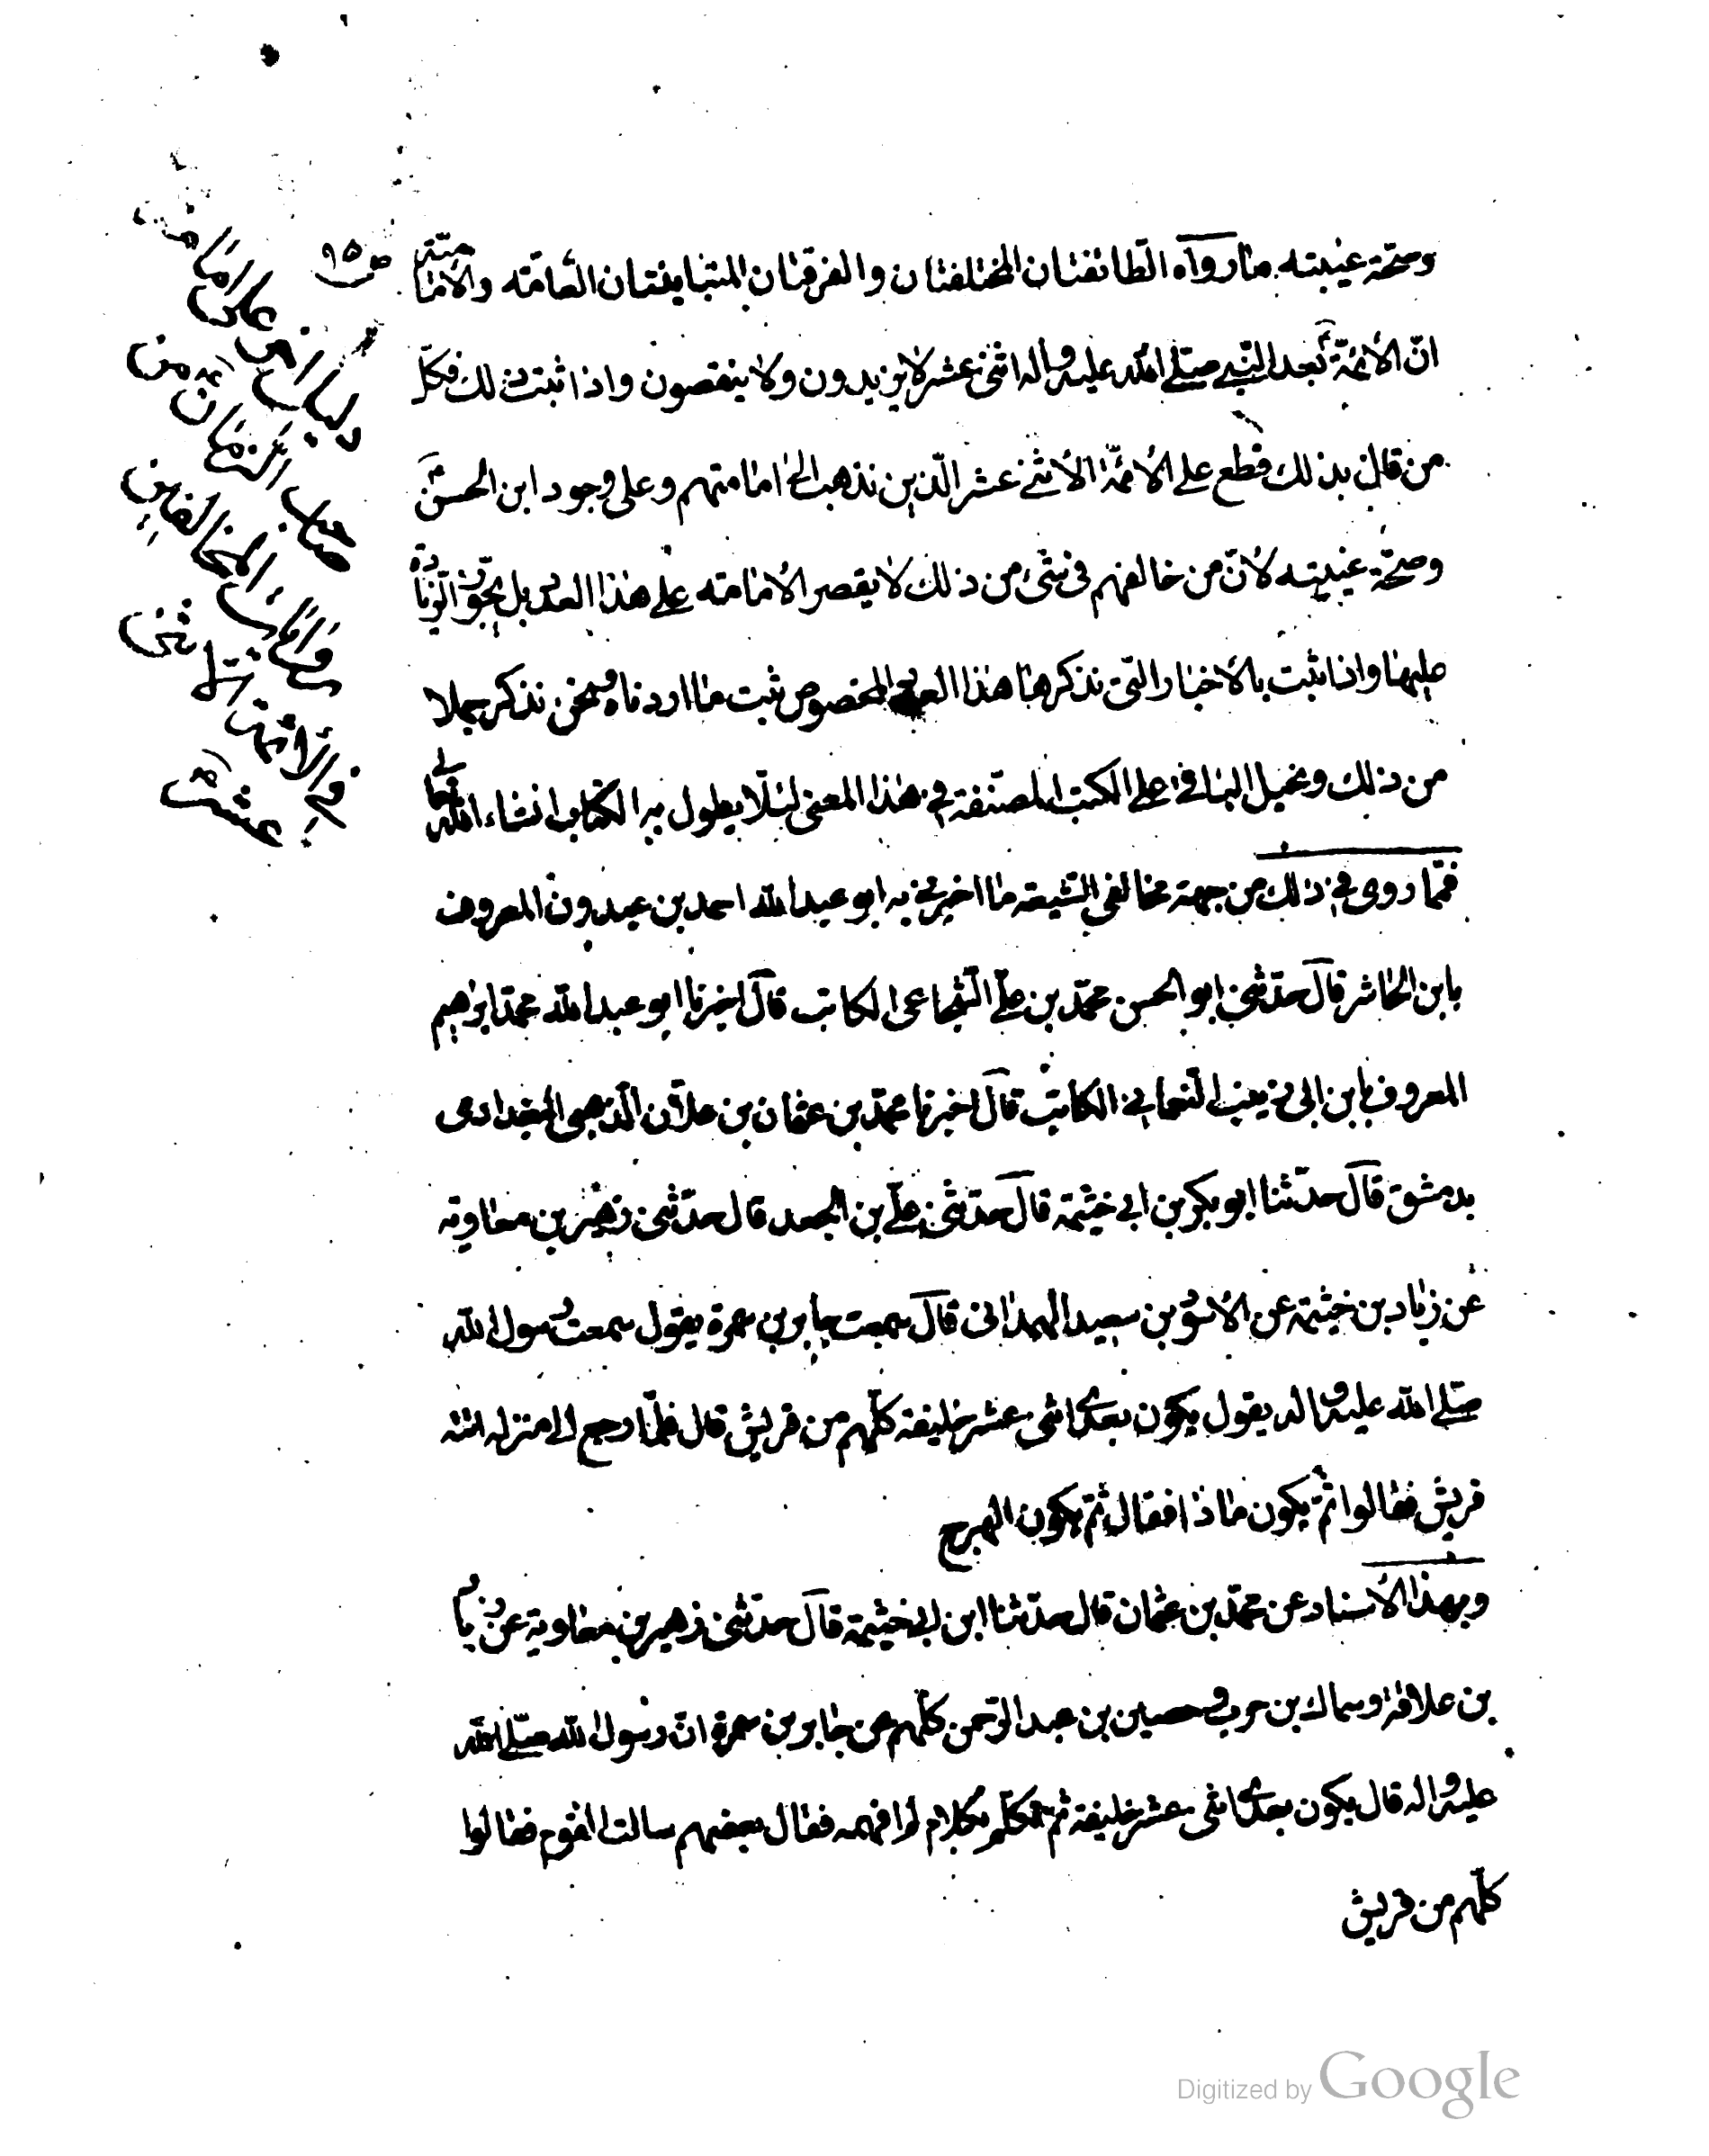 وصحّة غيبته ما رواه الطائفتان المختلفتان والفرقتان المتباينتان العامّه والاماميّه
انّ الأئمّة بعد النبي صلّى الله عليه وآله اثنى عشر لا يزيدون ولا ينقصون واذا ثبت ذلك فكلّ
من قال بذلك قطع على الأئمّة الأثنى عشر الّذين نذهب الى امامتهم وعلى وجود ابن الحسن
وصحّة غيبته لأنّ من خالفهم فى شئ من ذلك لا يقصر الأمامة على هذا العدد بل يجوّز الزّيادة
عليها واذا ثبت بالأخبار الّتى نذكرها هذا العدد المخصوص ثبت ما اردناه ونحن نذكر جملا
من ذلك ونحيل الباقى على الكتب المصنّفة فى هذا المعنى لئلّا يطول به الكتاب انشاء الله تعالى
فممّا روى فى ذلك من جهة مخالفى الشّيعة ما اخبرنى به ابو عبد الله احمد بن عبدون المعروف
بابن الحاشر قال حدّثنى ابو الحسن محمّد بن علىّ الشّجاعى الكاتب قال اخبرنا ابو عبد الله محمّد ابراهيم
المعروف بابن ابى زينب النّعمانى الكاتب قال اخبرنا محمّد بن عثمان بن علّان الذّهبى البغدادى
بدمشق قال حدّثنا ابو بكر بن ابى خيثمة قال حدّثنى علىّ بن الجعد قال حدّثنى زهير بن معاوية
عن زياد بن خيثمة عن الأسود بن سعيد الهمدانى قال سمعت جابر بن سمرة يقول سمعت رسول الله
صلّى الله عليه وآله يقول يكون بعدى اثنى عشر خليفة كلّهم من قريش قال فلمّا رجع الى منزله اتته
قريش فقالوا ثمّ يكون ماذا فقال ثمّ يكون الهرج
وبهذا الأسناد عن محمّد بن عثمان قال حدّثنا ابن ابى خيثمة قال حدّثنى زهير بن معاوية عن زياد
بن علاقة وسماك بن حرب وحصين بن عبد الرّحمن كلّهم عن جابر بن سمرة انّ رسول الله صلّى الله
عليه وآله قال يكون بعدى اثنى عشر خليفة ثمّ تكلّم بكلام لم افهمه فقال بعضهم سالت القوم فقالوا
كلّهم من قريش
ص ٩٥
Digitized by Google